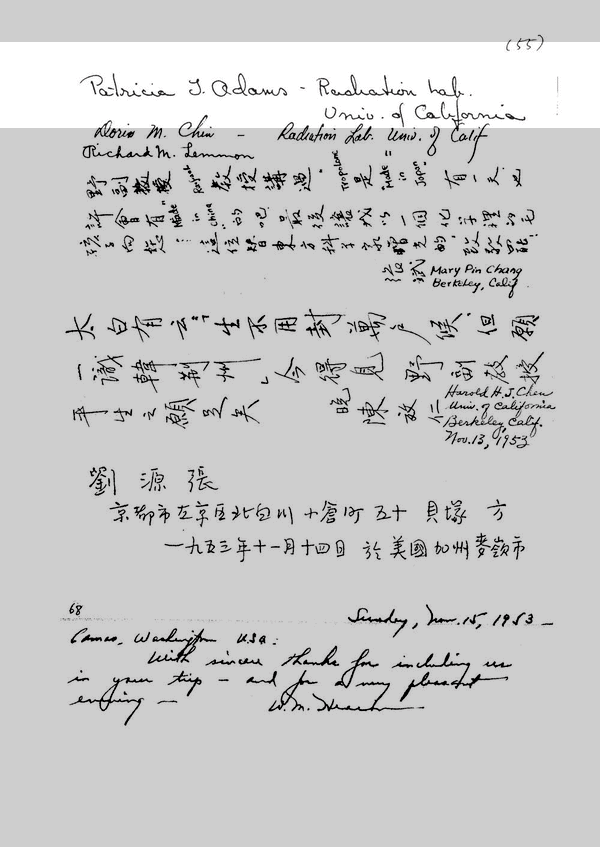 (55)
Patricia J. Adams - Radiation Lab.
Univ. of California
Doris M. Chin - Radiation Lab. Univ. of Calif
Richard M. Lemmon
野副教授 教授講過 "Tropolone" 是 "Made in Japan" 有一天也
許會有 "Made in China" 的吧 最後讓我以一個化学裡的毛
孩子向您 這位替東方科学家 的 致敬罷!
Mary Pin Chang
Berkeley, Calif
太白有云"生不用封萬戶候,但願
一識韓荊州"今得見野副教授
平生之願足矣 晚陳敬仁
Harold H. J. Chen
Univ. of California
Berkeley, Calif.
Nov. 13, 1953
劉源張
京都市左京区北白川小倉町五十 貝塚 方
一九五三年十一月十四日 於美國加州麥嶺市
68
Sunday, Nov. 15, 1953 -
Camas, Washington U.S.A.
With sincere thanks for including us
in your trip - and for a very pleasant
evening -
W. M. Hearon